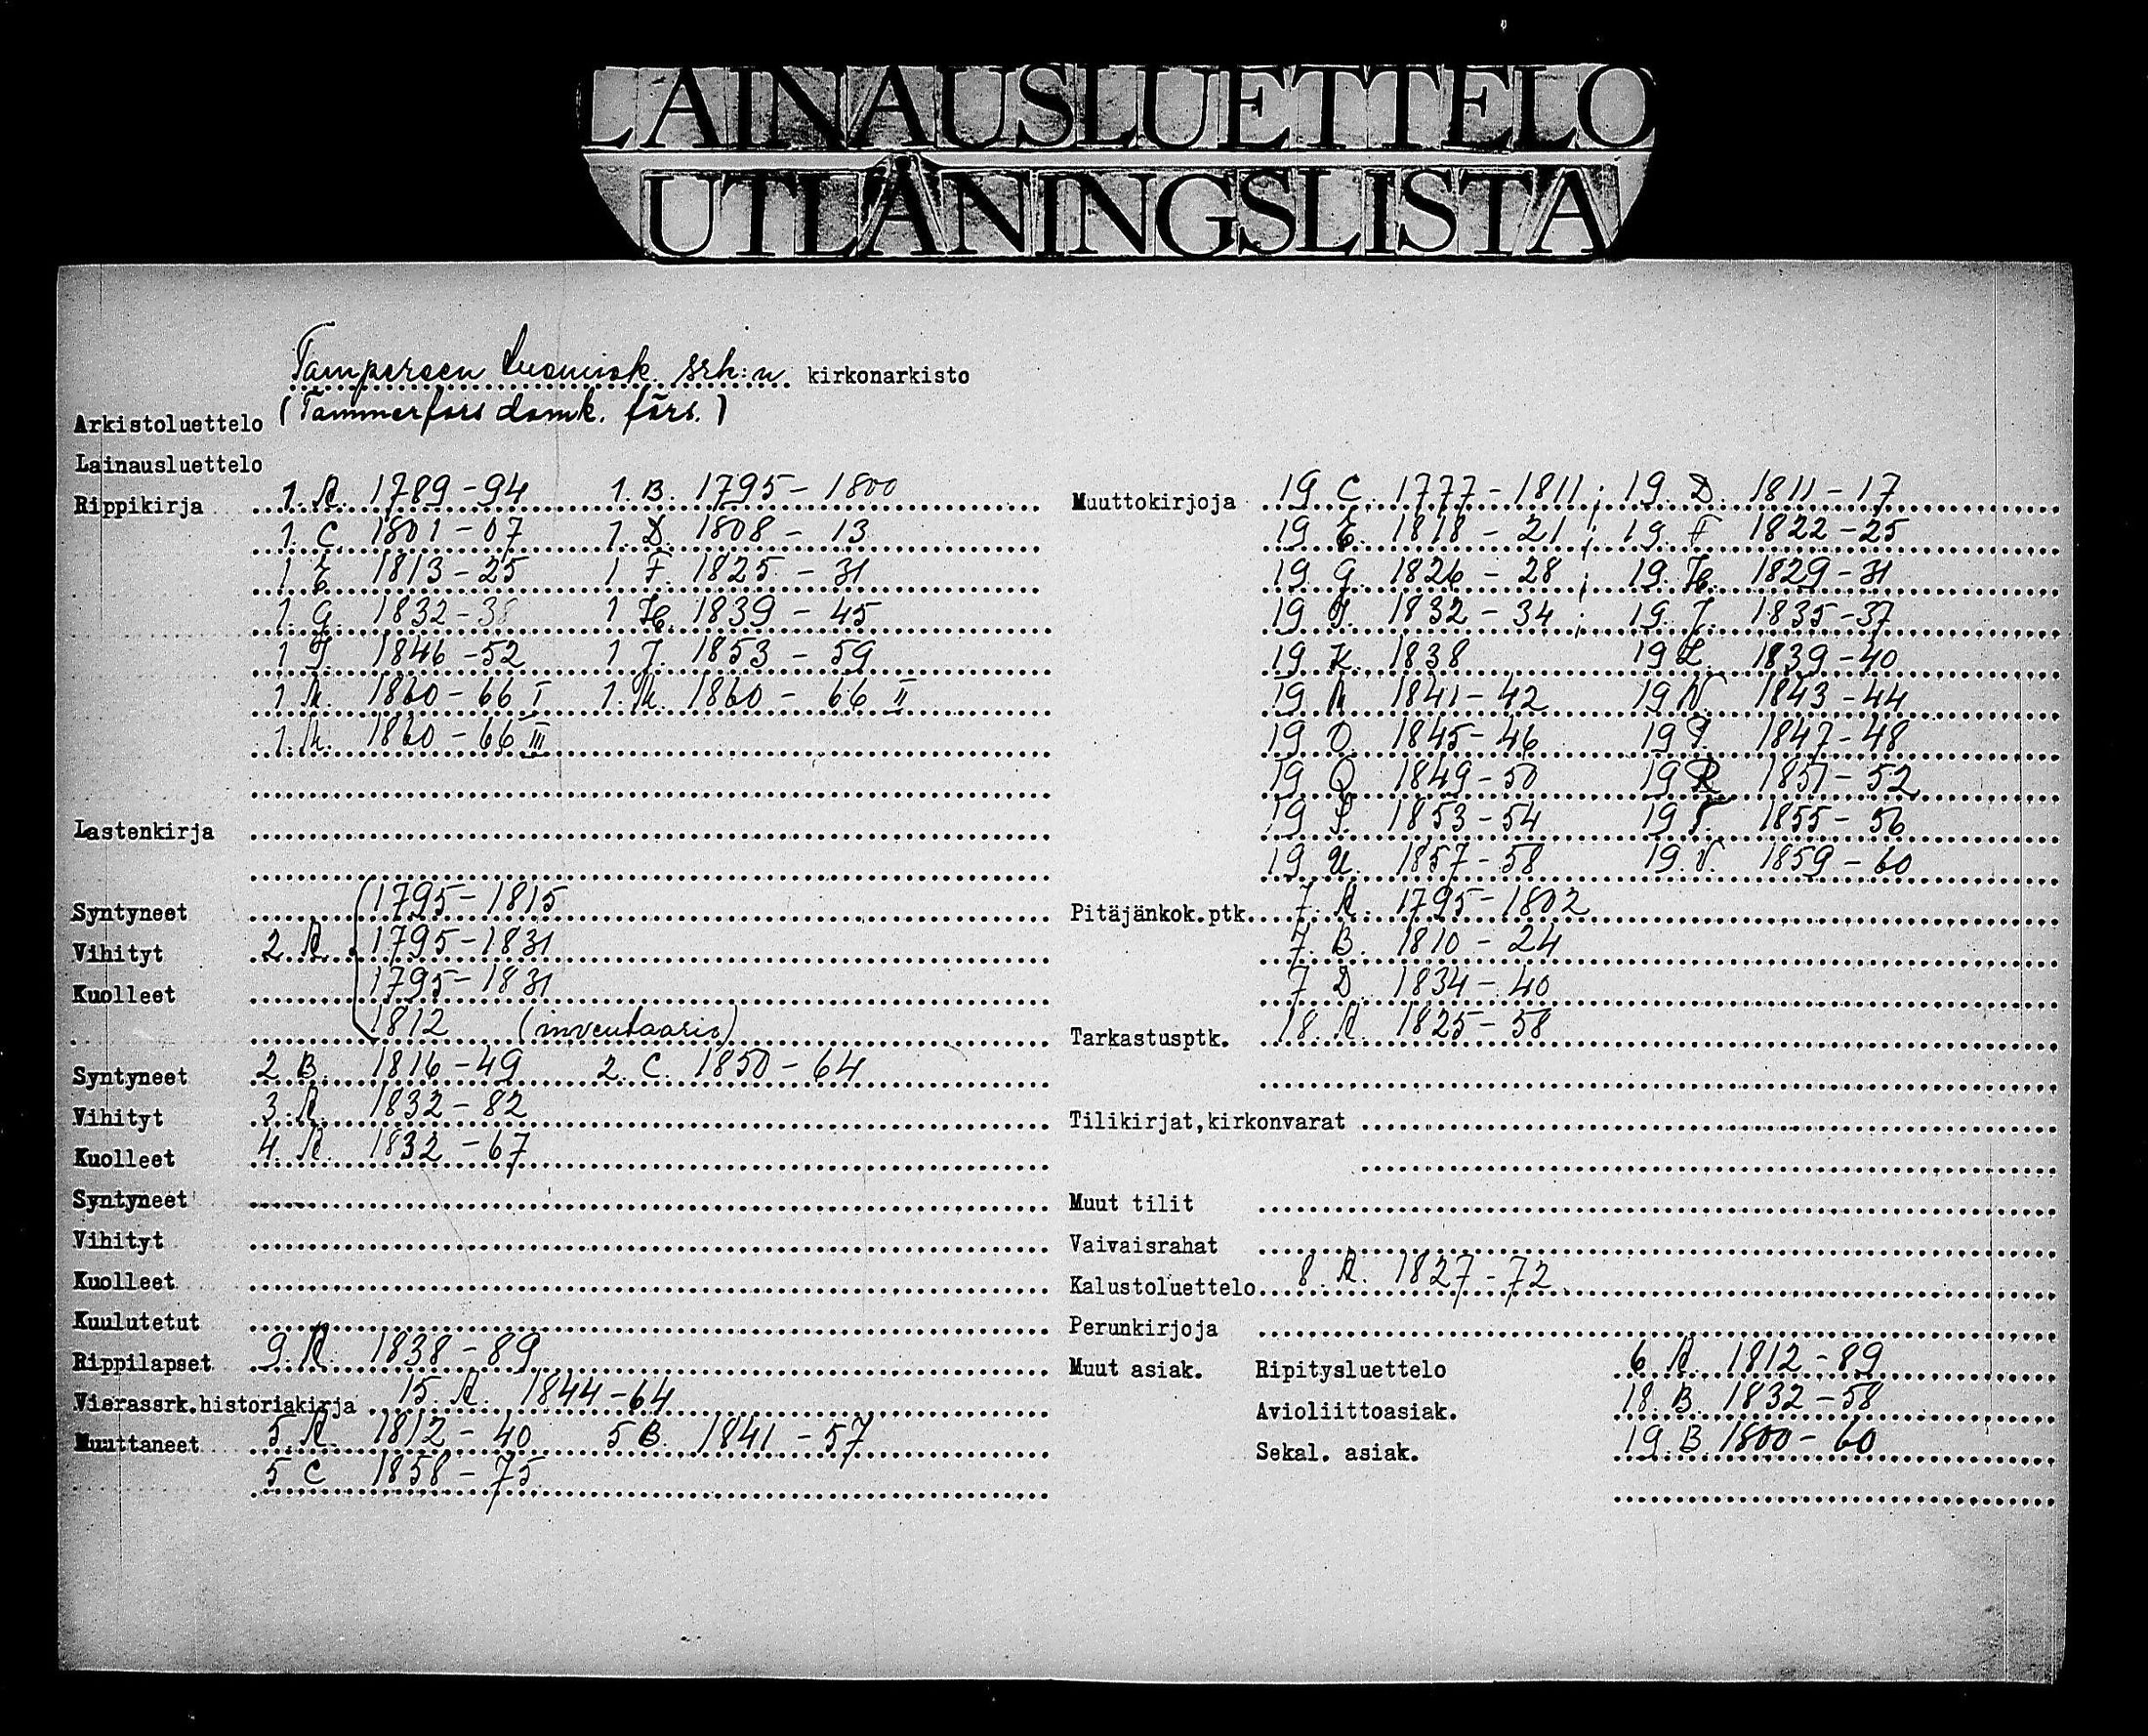 LAINAUSLUETTELO
UTLÅNINGSLISTA
Tampereen tuomiok. srh:n kirkonarkisto
Arkistoluettelo (Tammerfors domk. förs.)
Lainausluettelo
Rippikirja 1. A. 1789-94 1. B. 1795-1800
1. C. 1801-07 1. D. 1808-13
1 E 1813-25 1 F. 1825-31
1. G. 1832-38 1 H. 1839-45
1 I. 1846-52 1 J. 1853-59
1 K. 1860-66 I 1. K. 1860-66 II
1. K. 1860-66 III
Lastenkirja
Syntyneet 1795-1815
Vihityt 2. A. 1795-1831
Kuolleet 1795-1831
1812 (inventaario)
Syntyneet 2 B. 1816-49 2. C. 1850-64
Vihityt 3. A. 1832-82
Kuolleet 4. A. 1832-67
Syntyneet
Vihityt
Kuolleet
Kuulutetut
Rippilapset 9. A. 1838-89
Vierassrk.historiakirja 15. A. 1844-64
Muuttaneet 5. A. 1812-40 5 B. 1841-57
5 C 1858-75
Muuttokirjoja 19 C. 1777-1811; 19. D. 1811-17
19 E. 1818-21; 19. F 1822-25
19 G. 1826-28; 19. H. 1829-31
19 I. 1832-34; 19. J. 1835-37
19 K. 1838 19 L. 1839-40
19 M 1841-42 19 N. 1843-44
19 O. 1845-46 19 P. 1847-48
19 Q 1849-50 19 R 1851-52
19 S. 1853-54 19 T. 1855-56
19 U. 1857-58 19. V. 1859-60
Pitäjänkok.ptk. 7. A. 1795-1802
7. B. 1810-24
7 D. 1834-40
Tarkastusptk. 18. A. 1825-58
Tilikirjat,kirkonvarat
Muut tilit
Vaivaisrahat
Kalustoluettelo 8. A. 1827-72
Perunkirjoja
Muut asiak. Ripitysluettelo 6 A. 1812-89
Avioliittoasiak. 18. B. 1832-58
Sekal. asiak. 19. B. 1800-60